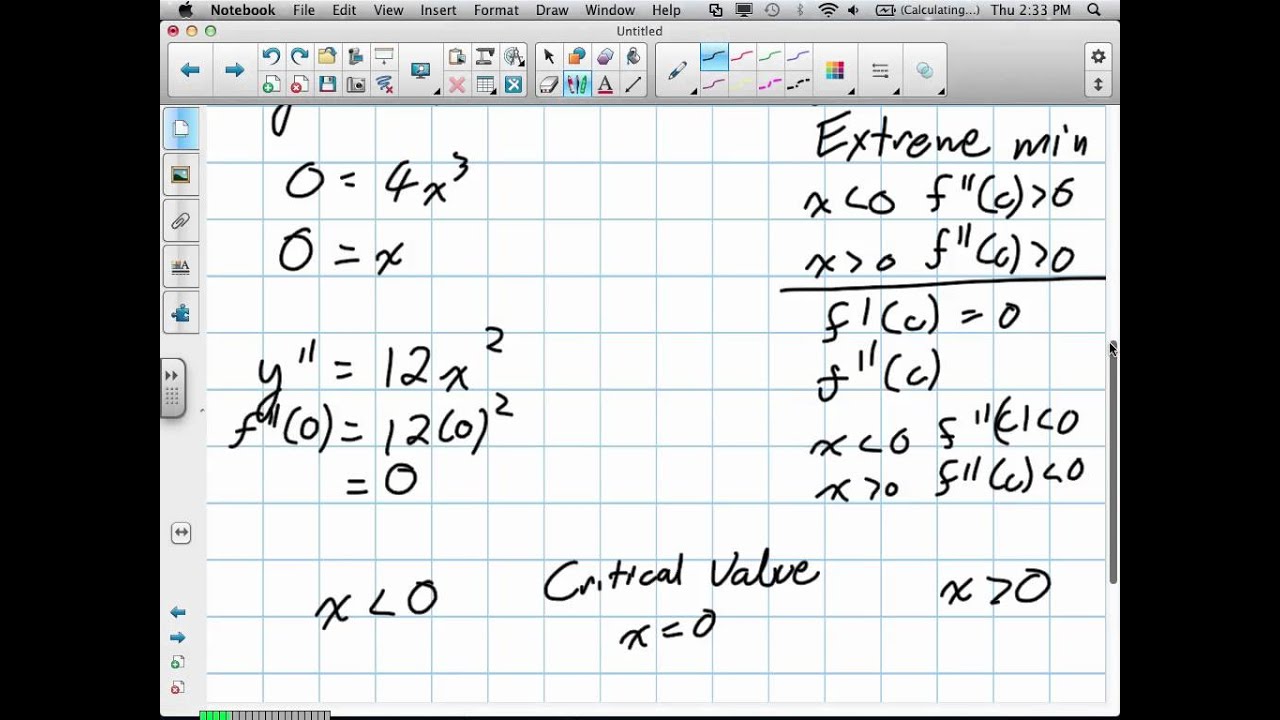 Notebook File Edit View Insert Format Draw Window Help (Calculating...) Thu 2:33 PM
Untitled
y
0 = 4x³
0 = x
y'' = 12x²
f''(0) = 12(0)²
= 0
Extreme min
x<0 f''(c)>0
x>0 f''(c)>0
f'(c) = 0
f''(c)
x<0 f''(c)<0
x>0 f''(c)<0
x<0 Critical Value x>0
x=0